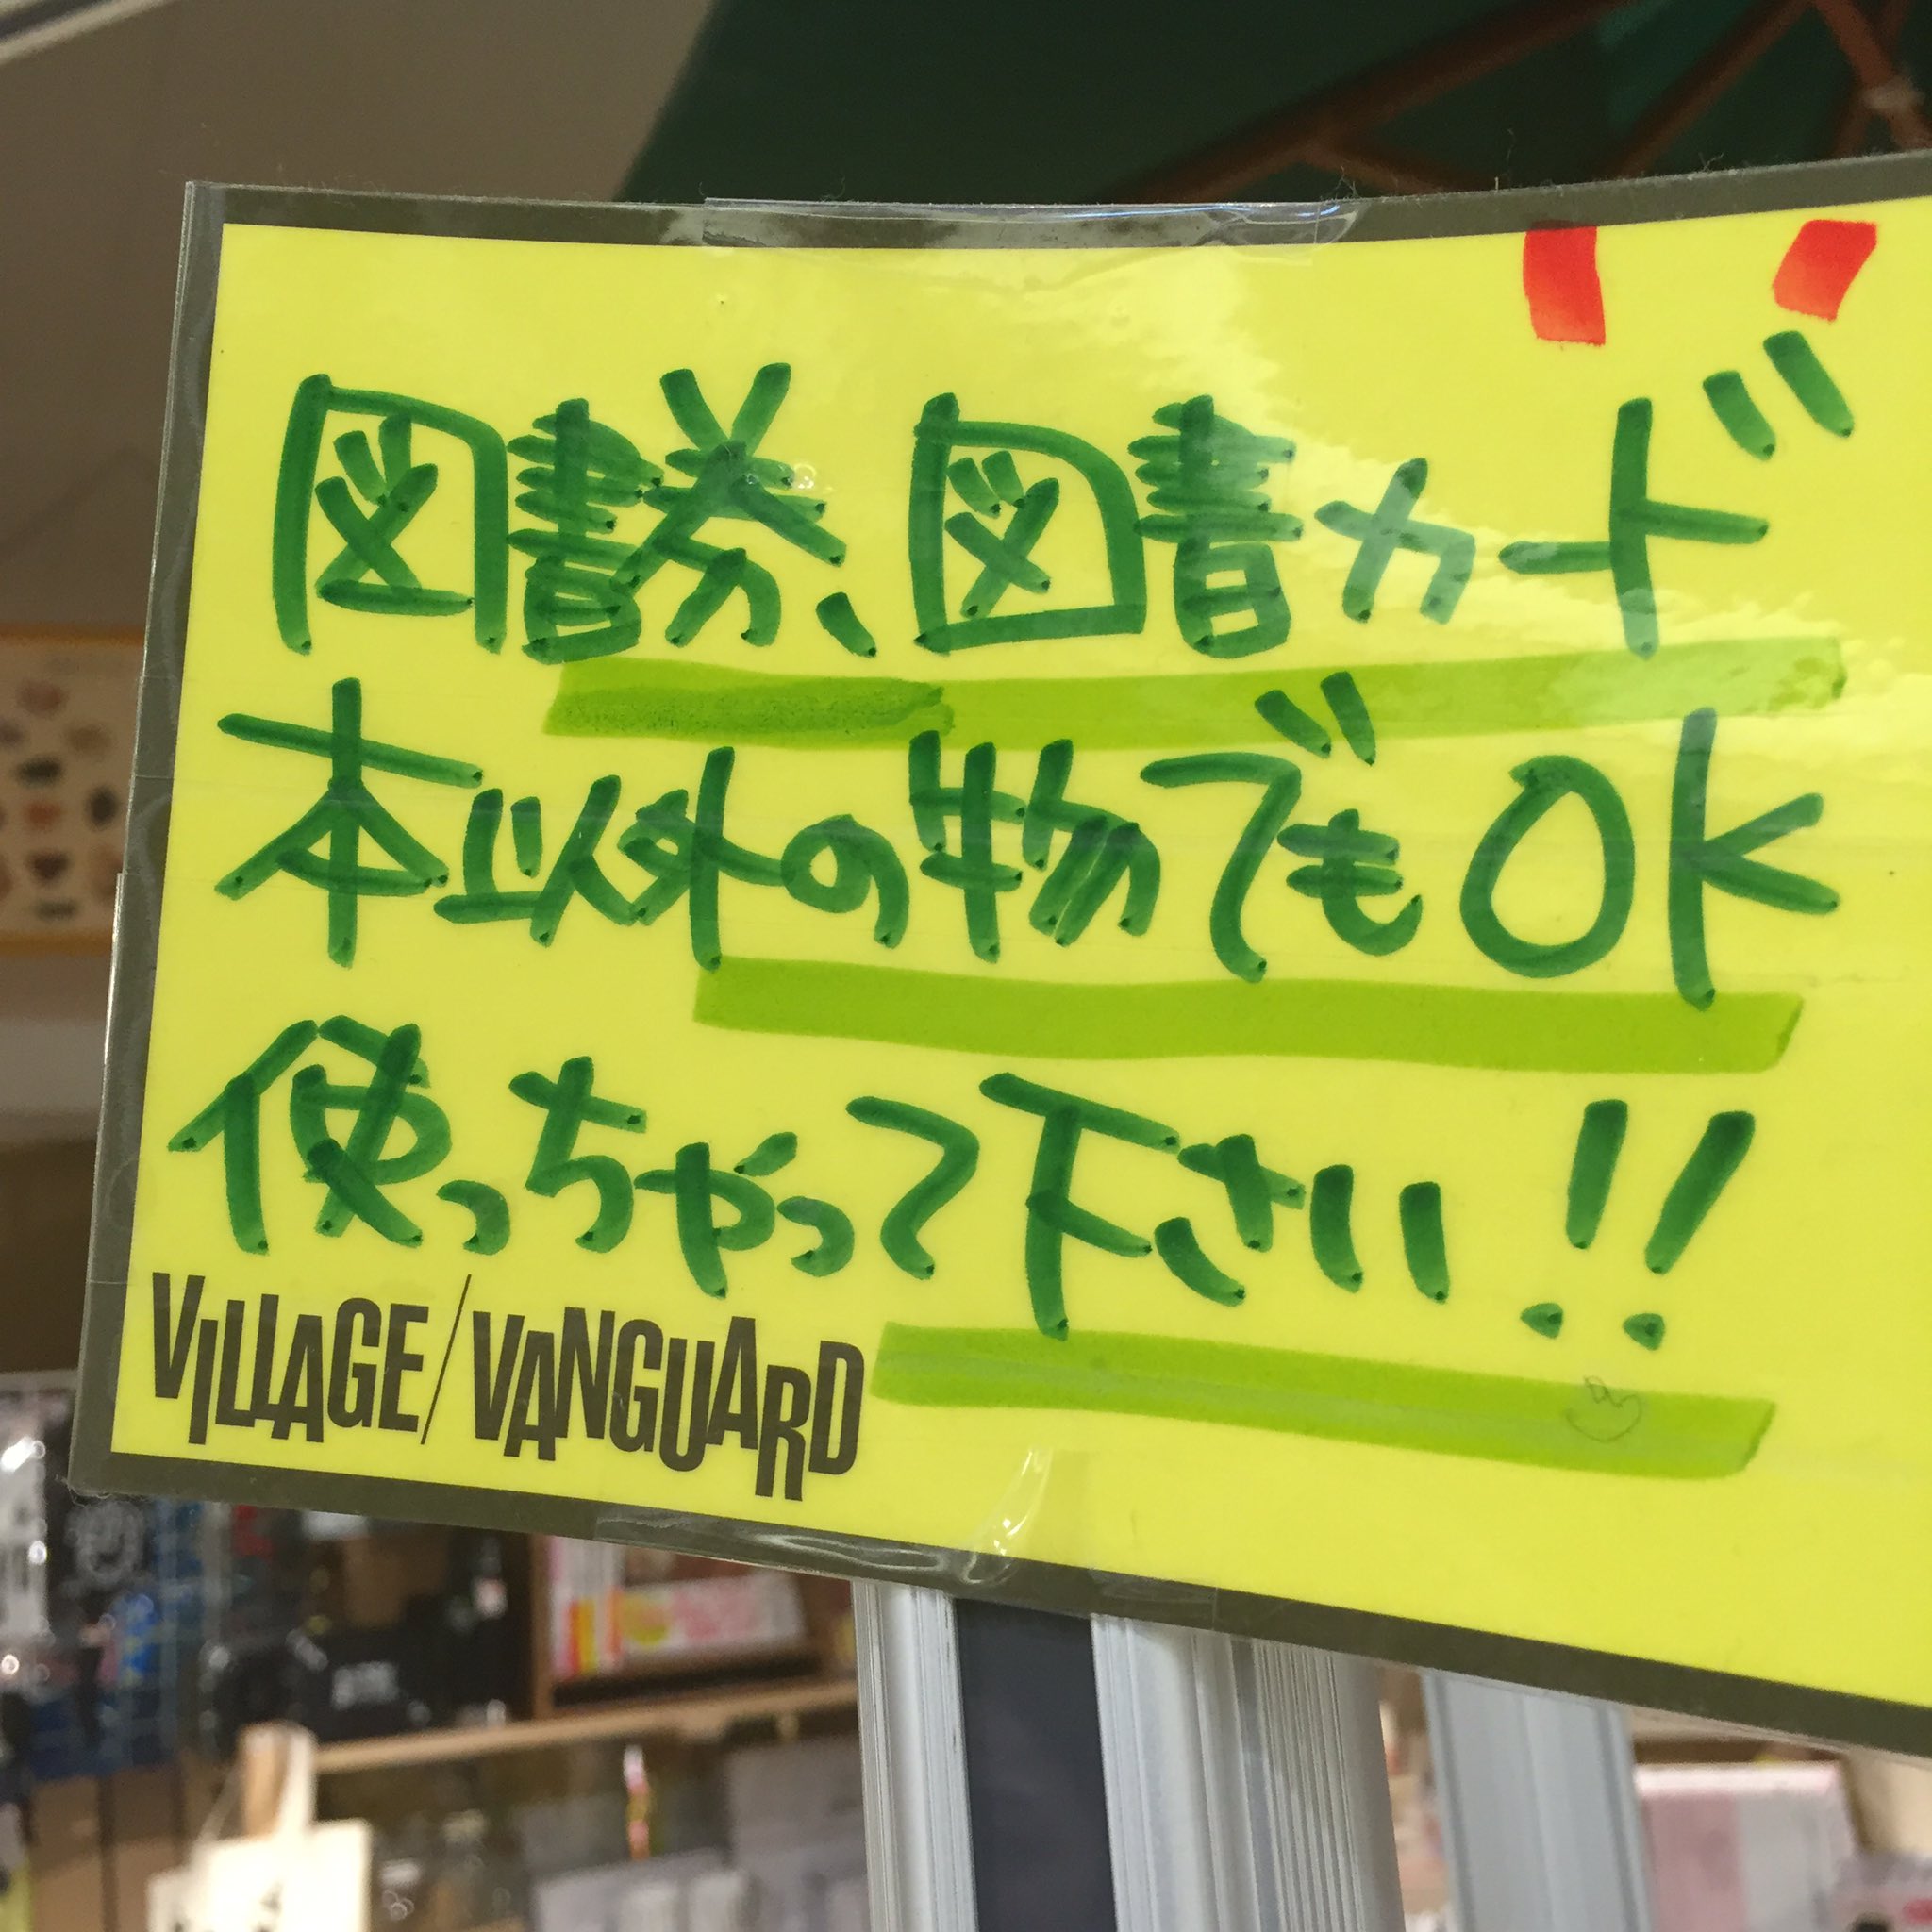 図書券、図書カード
本以外の物でもOK
使っちゃって下さい!!
VILLAGE/VANGUARD